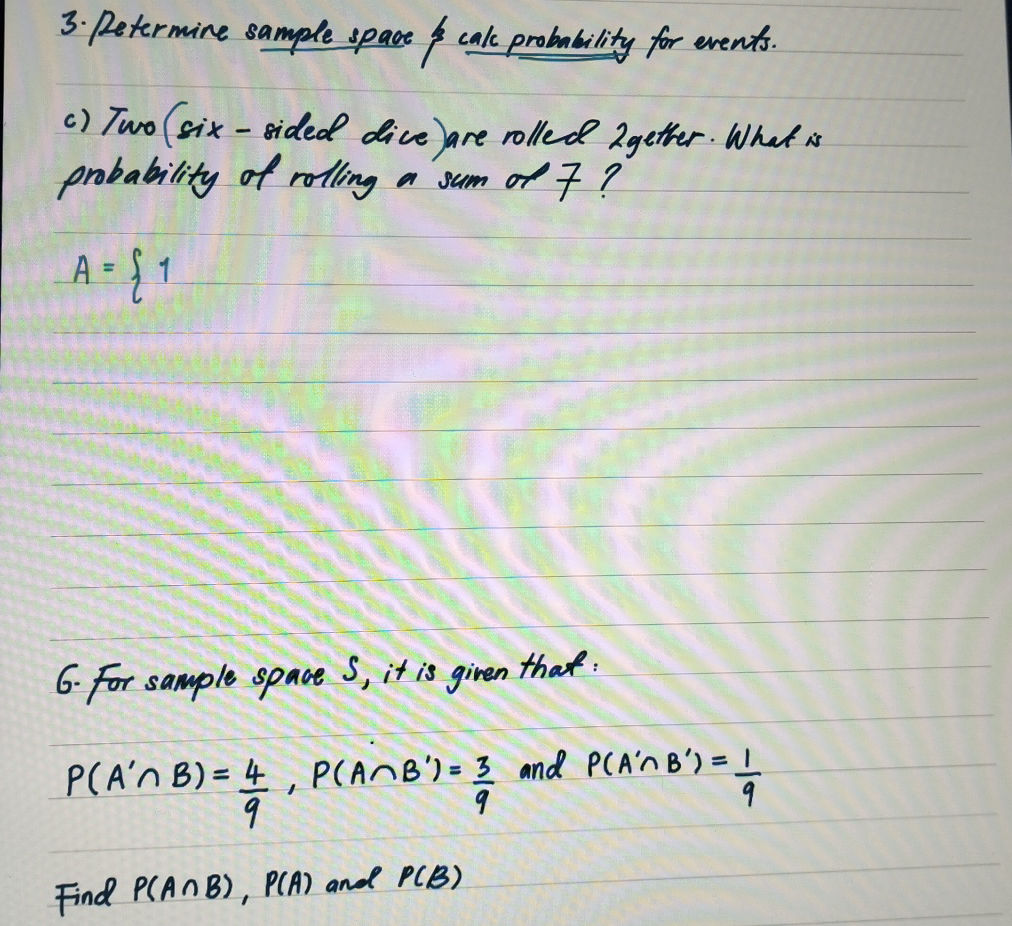 3. Determine sample space & calc probability for events.
c) Two (six - sided dice) are rolled 2gether. What is
probability of rolling a sum of 7 ?
A = { 1
6. For sample space S, it is given that :
P(A'∩B) = 4/9 , P(A∩B') = 3/9 and P(A'∩B') = 1/9
Find P(A∩B), P(A) and P(B)